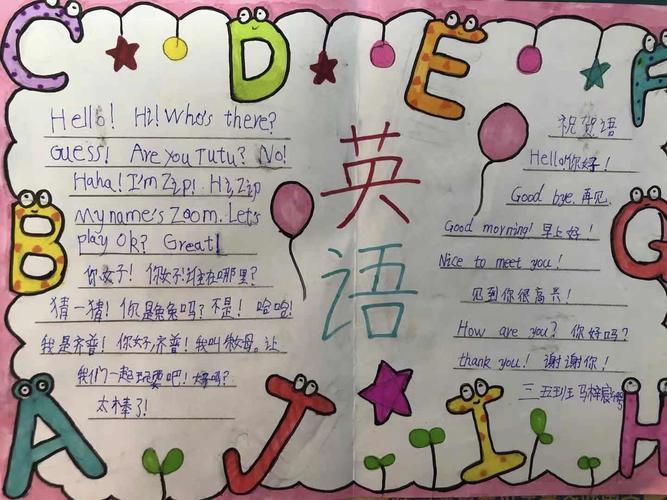 C D E F
B
Q
A J I H
英语
Hello! Hi! Who's there?
Guess! Are you Tutu? No!
Haha! I'm Zip! Hi, Zip
My name's Zoom. Let's
play ok? Great!
你好! 你好!谁在哪里?
猜一猜! 你是兔兔吗? 不是! 哈哈!
我是齐普! 你好,齐普! 我叫 让
我们一起玩耍吧! 好吗?
太棒了!
祝贺语
Hello!你好!
Good bye. 再见.
Good morning! 早上好!
Nice to meet you!
见到你很高兴!
How are you? 你好吗?
thank you! 谢谢你!
三 五班 马梓宸